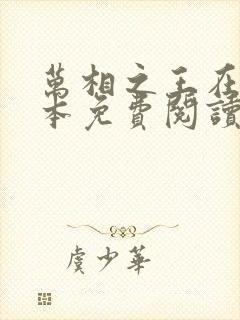 萬相之王在
本免費閱讀
虞少華